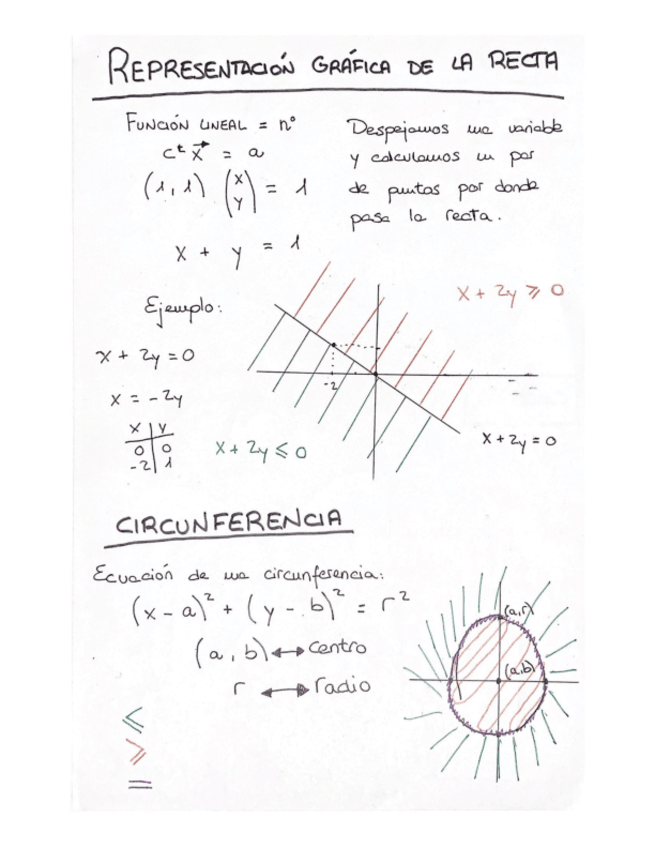 REPRESENTACIÓN GRÁFICA DE LA RECTA
FUNCIÓN LINEAL = nº
cᵗ x⃗ = a
(1, 1) (x y) = 1
x + y = 1
Despejamos una variable
y calculamos un par
de puntos por donde
pasa la recta.
Ejemplo:
x + 2y = 0
x = -2y
x | y
0 | 0
-2 | 1
x + 2y ⩾ 0
-2
x + 2y ⩽ 0
x + 2y = 0
CIRCUNFERENCIA
Ecuación de una circunferencia:
(x - a)² + (y - b)² = r²
(a, b) ↔ centro
r ↔ radio
(a,r)
(a,b)
⩽
⩾
=